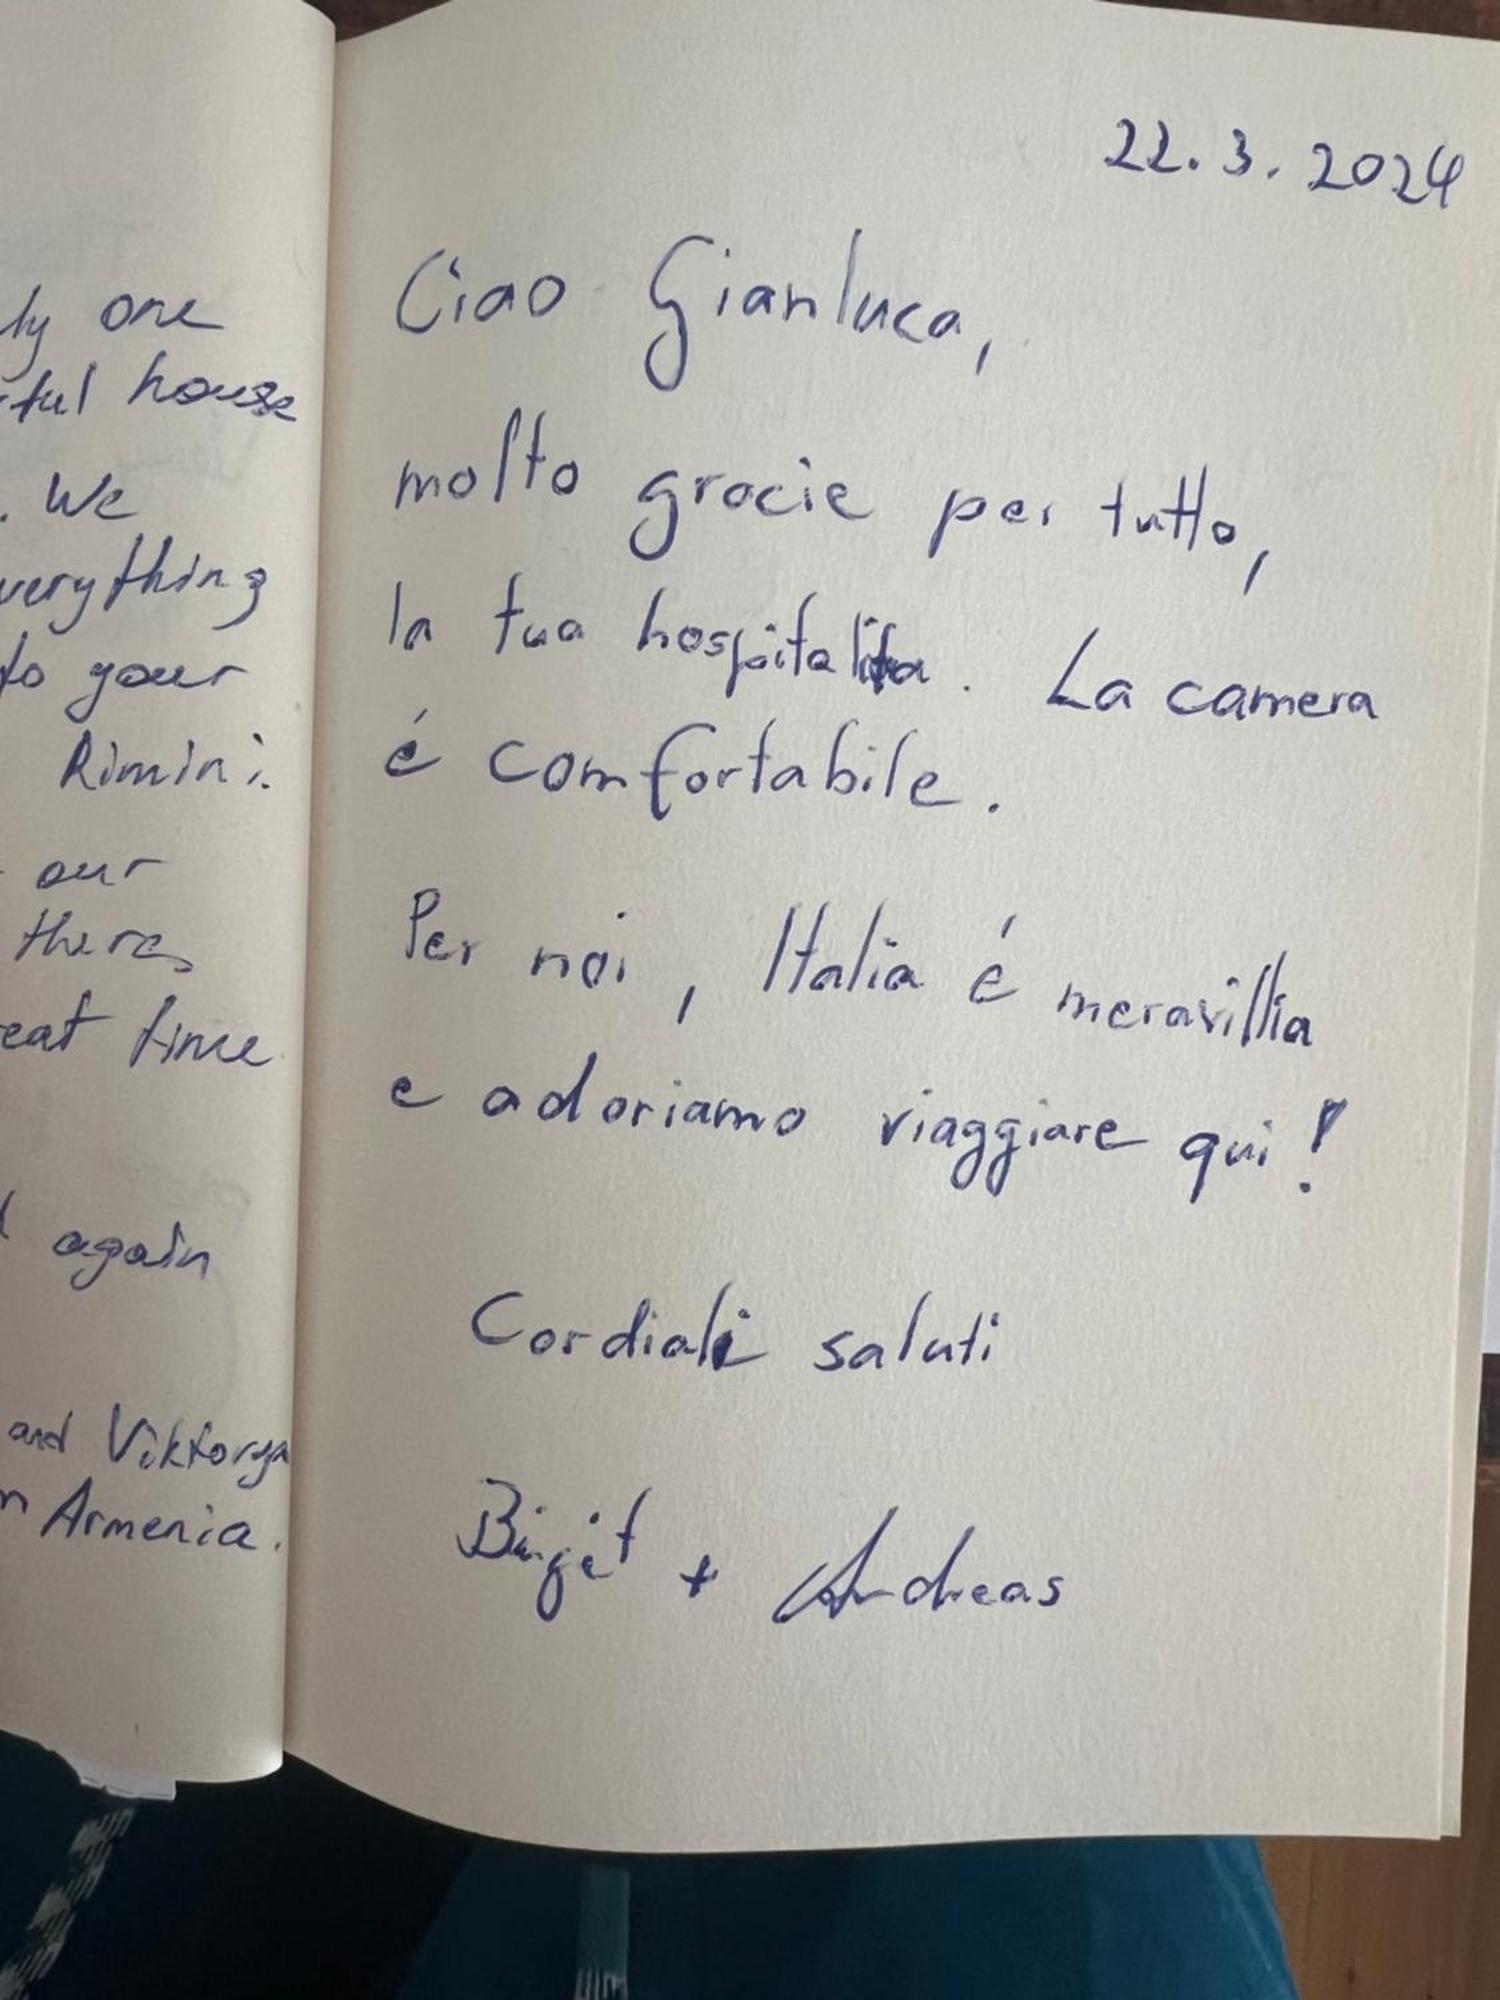 ly one
ful house
. We
verything
to your
Rimini.
our
there,
eat time
again
and Viktorya
n Armenia.
22.3.2024
Ciao Gianluca,
molto gracie per tutto,
la tua hospitalita. La camera
é comfortabile.
Per noi, Italia é meravillia
e adoriamo viaggiare qui!
Cordiali saluti
Birgit + Andreas